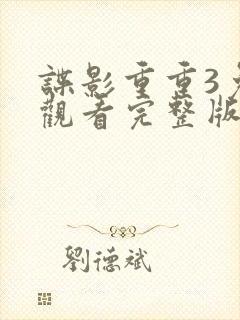 諜影重重3
觀看完整版
劉德斌